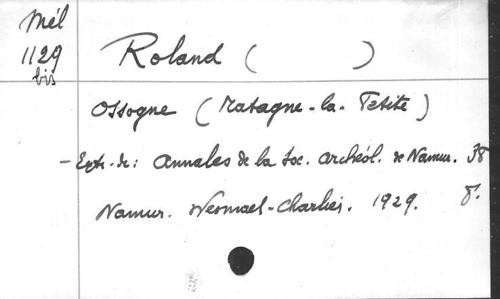 Mél
1129
bis
Roland (          )
Ossogne (Matagne-la-Petite)
- Extr. de: Annales de la Soc. archéol. de Namur. 38
Namur. Wesmael-Charlier. 1929. 8°.